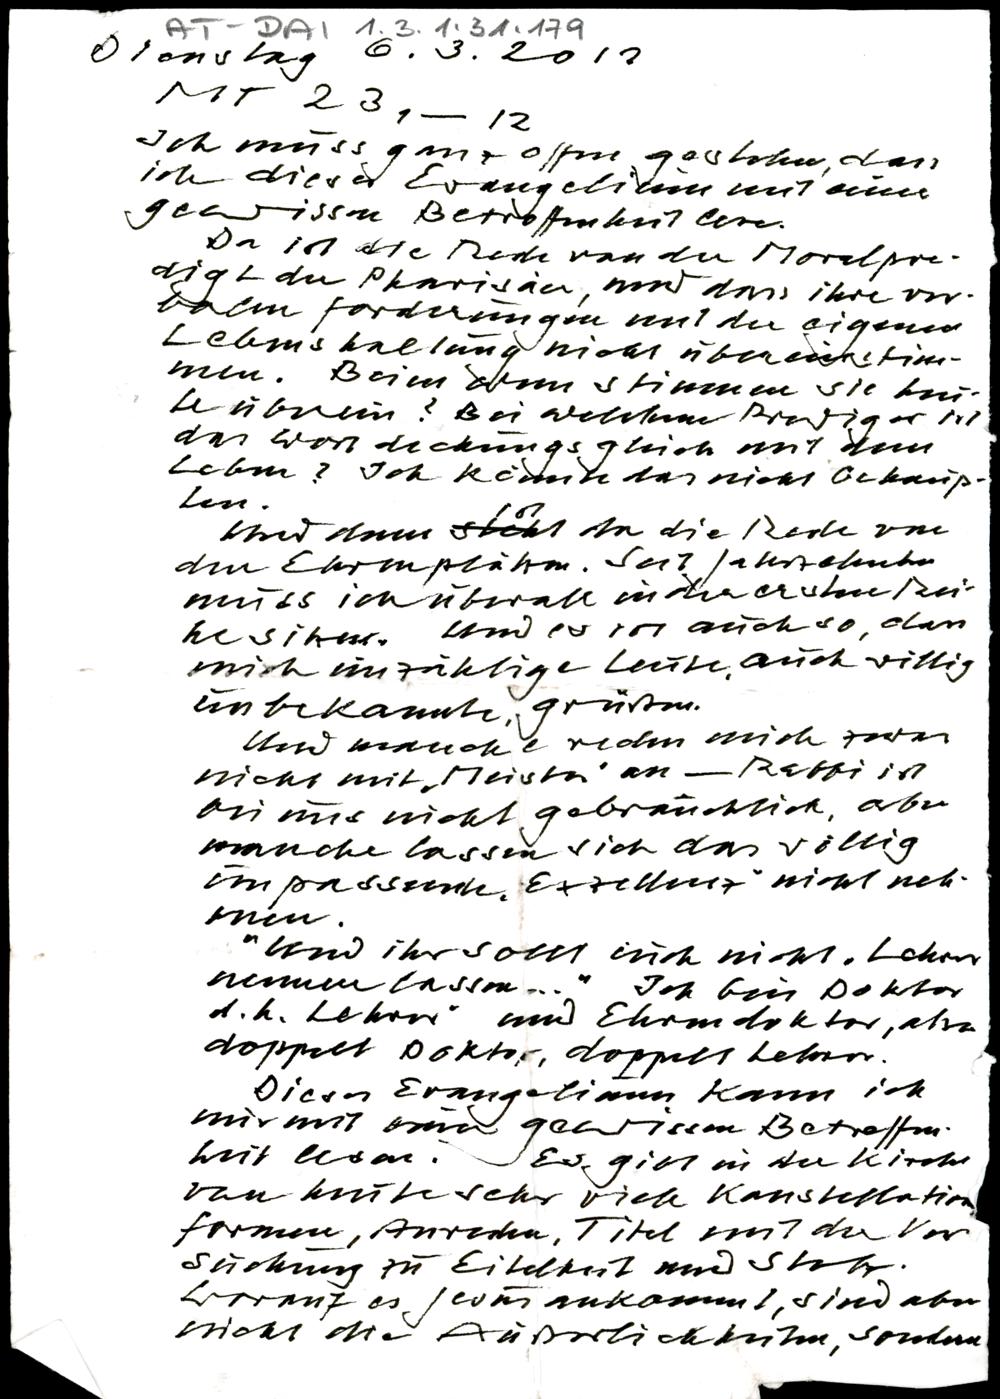 AT-DAI 1.3.1.31.179
Dienstag 6.3.2012
MT 23,1–12
Ich muss ganz offen gestehen, dass
ich dieses Evangelium mit einer
gewissen Betroffenheit lese.
Da ist die Rede von der Moralpre-
digt der Pharisäer, und dass ihre ver-
balen Forderungen mit der eigenen
Lebenshaltung nicht übereinstim-
men. Beim wem stimmen sie heu-
te überein? Bei welchem Prediger ist
das Wort deckungsgleich mit dem
Leben? Ich könnte das nicht behaup-
ten.
Und dann ist da die Rede von
den Ehrenplätzen. Seit Jahrzehnten
muss ich überall in der ersten Rei-
he sitzen. Und es ist auch so, dass
mich unzählige Leute, auch völlig
unbekannte, grüßen.
Und manche reden mich zwar
nicht mit „Meister" an — Rabbi ist
bei uns nicht gebräuchlich, aber
manche lassen sich das völlig
unpassende „Exzellenz" nicht neh-
men.
"Und ihr sollt euch nicht „Lehrer
nennen lassen..." Ich bin Doktor
d.h. Lehrer" und Ehrendoktor, also
doppelt Doktor, doppelt Lehrer.
Dieses Evangelium kann ich
nur mit einer gewissen Betroffen-
heit lesen. Es gibt in der Kirche
von heute sehr viele
formen, Anreden, Titel mit der Ver-
suchung zu Eitelkeit und Stolz.
Worauf es Jesus ankommt, sind aber
nicht die Äußerlichkeiten, sondern